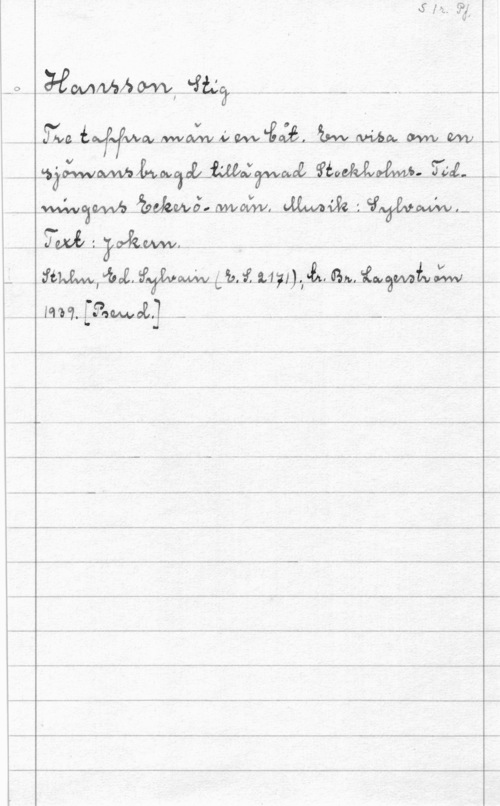 S. 1 r. Pf.
Hansson, Stig
Tre tappra män i en båt. En visa om en
sjömansbragd tillägnad Stockholms-Tid-
ningens Eckerö-män. Musik: Sylvain.
Text: Jokern.
Sthlm, Ed. Sylvain (E. S. 217/); tr. Br. Lagerström
1939. [Pseud.]